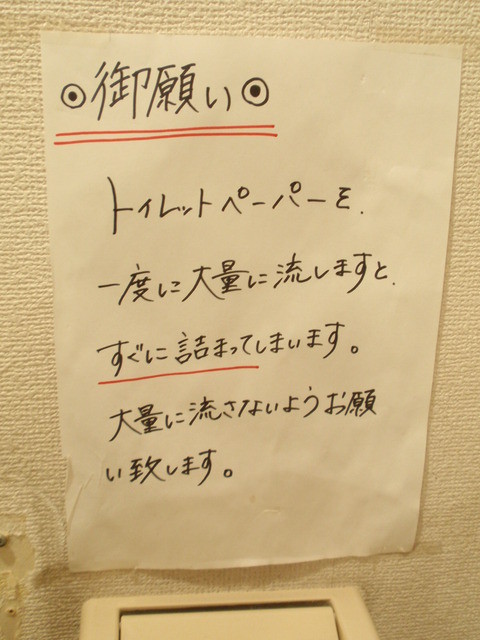 ◎御願い◎
トイレットペーパーを、
一度に大量に流しますと、
すぐに詰まってしまいます。
大量に流さないようお願
い致します。